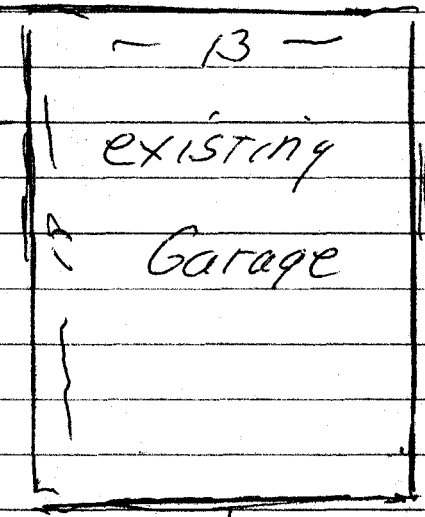 — 13 —
existing
Garage